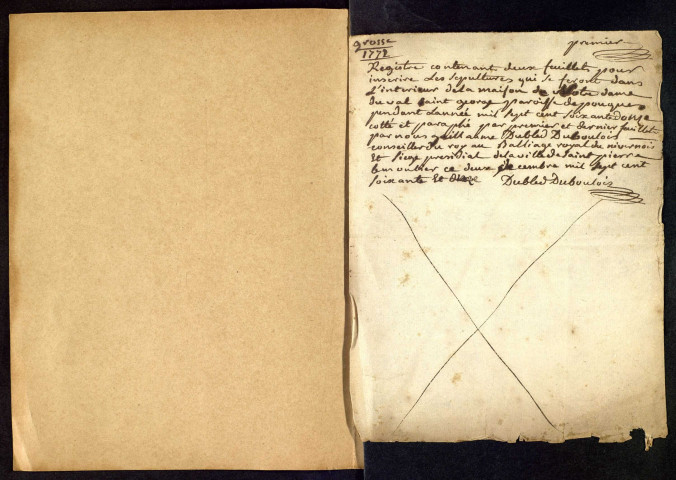 grosse
1772
premier
Registre contenant deux feuillets pour
inscrire Les sepultures qui se feront dans
L'interieur de la maison de Notre dame
du val saint george paroisse de pougues
pendant Lannée mil sept cent soixante douze
cotté et paraphé par premier et dernier feuillet
par nous guillaume Dubled Duboulois
conseiller du roy au Balliage royal de nivernois
Et siege presidial de la ville de saint pierre
lemoutier ce deux decembre mil sept cent
soixante Et onze Dubled Duboulois